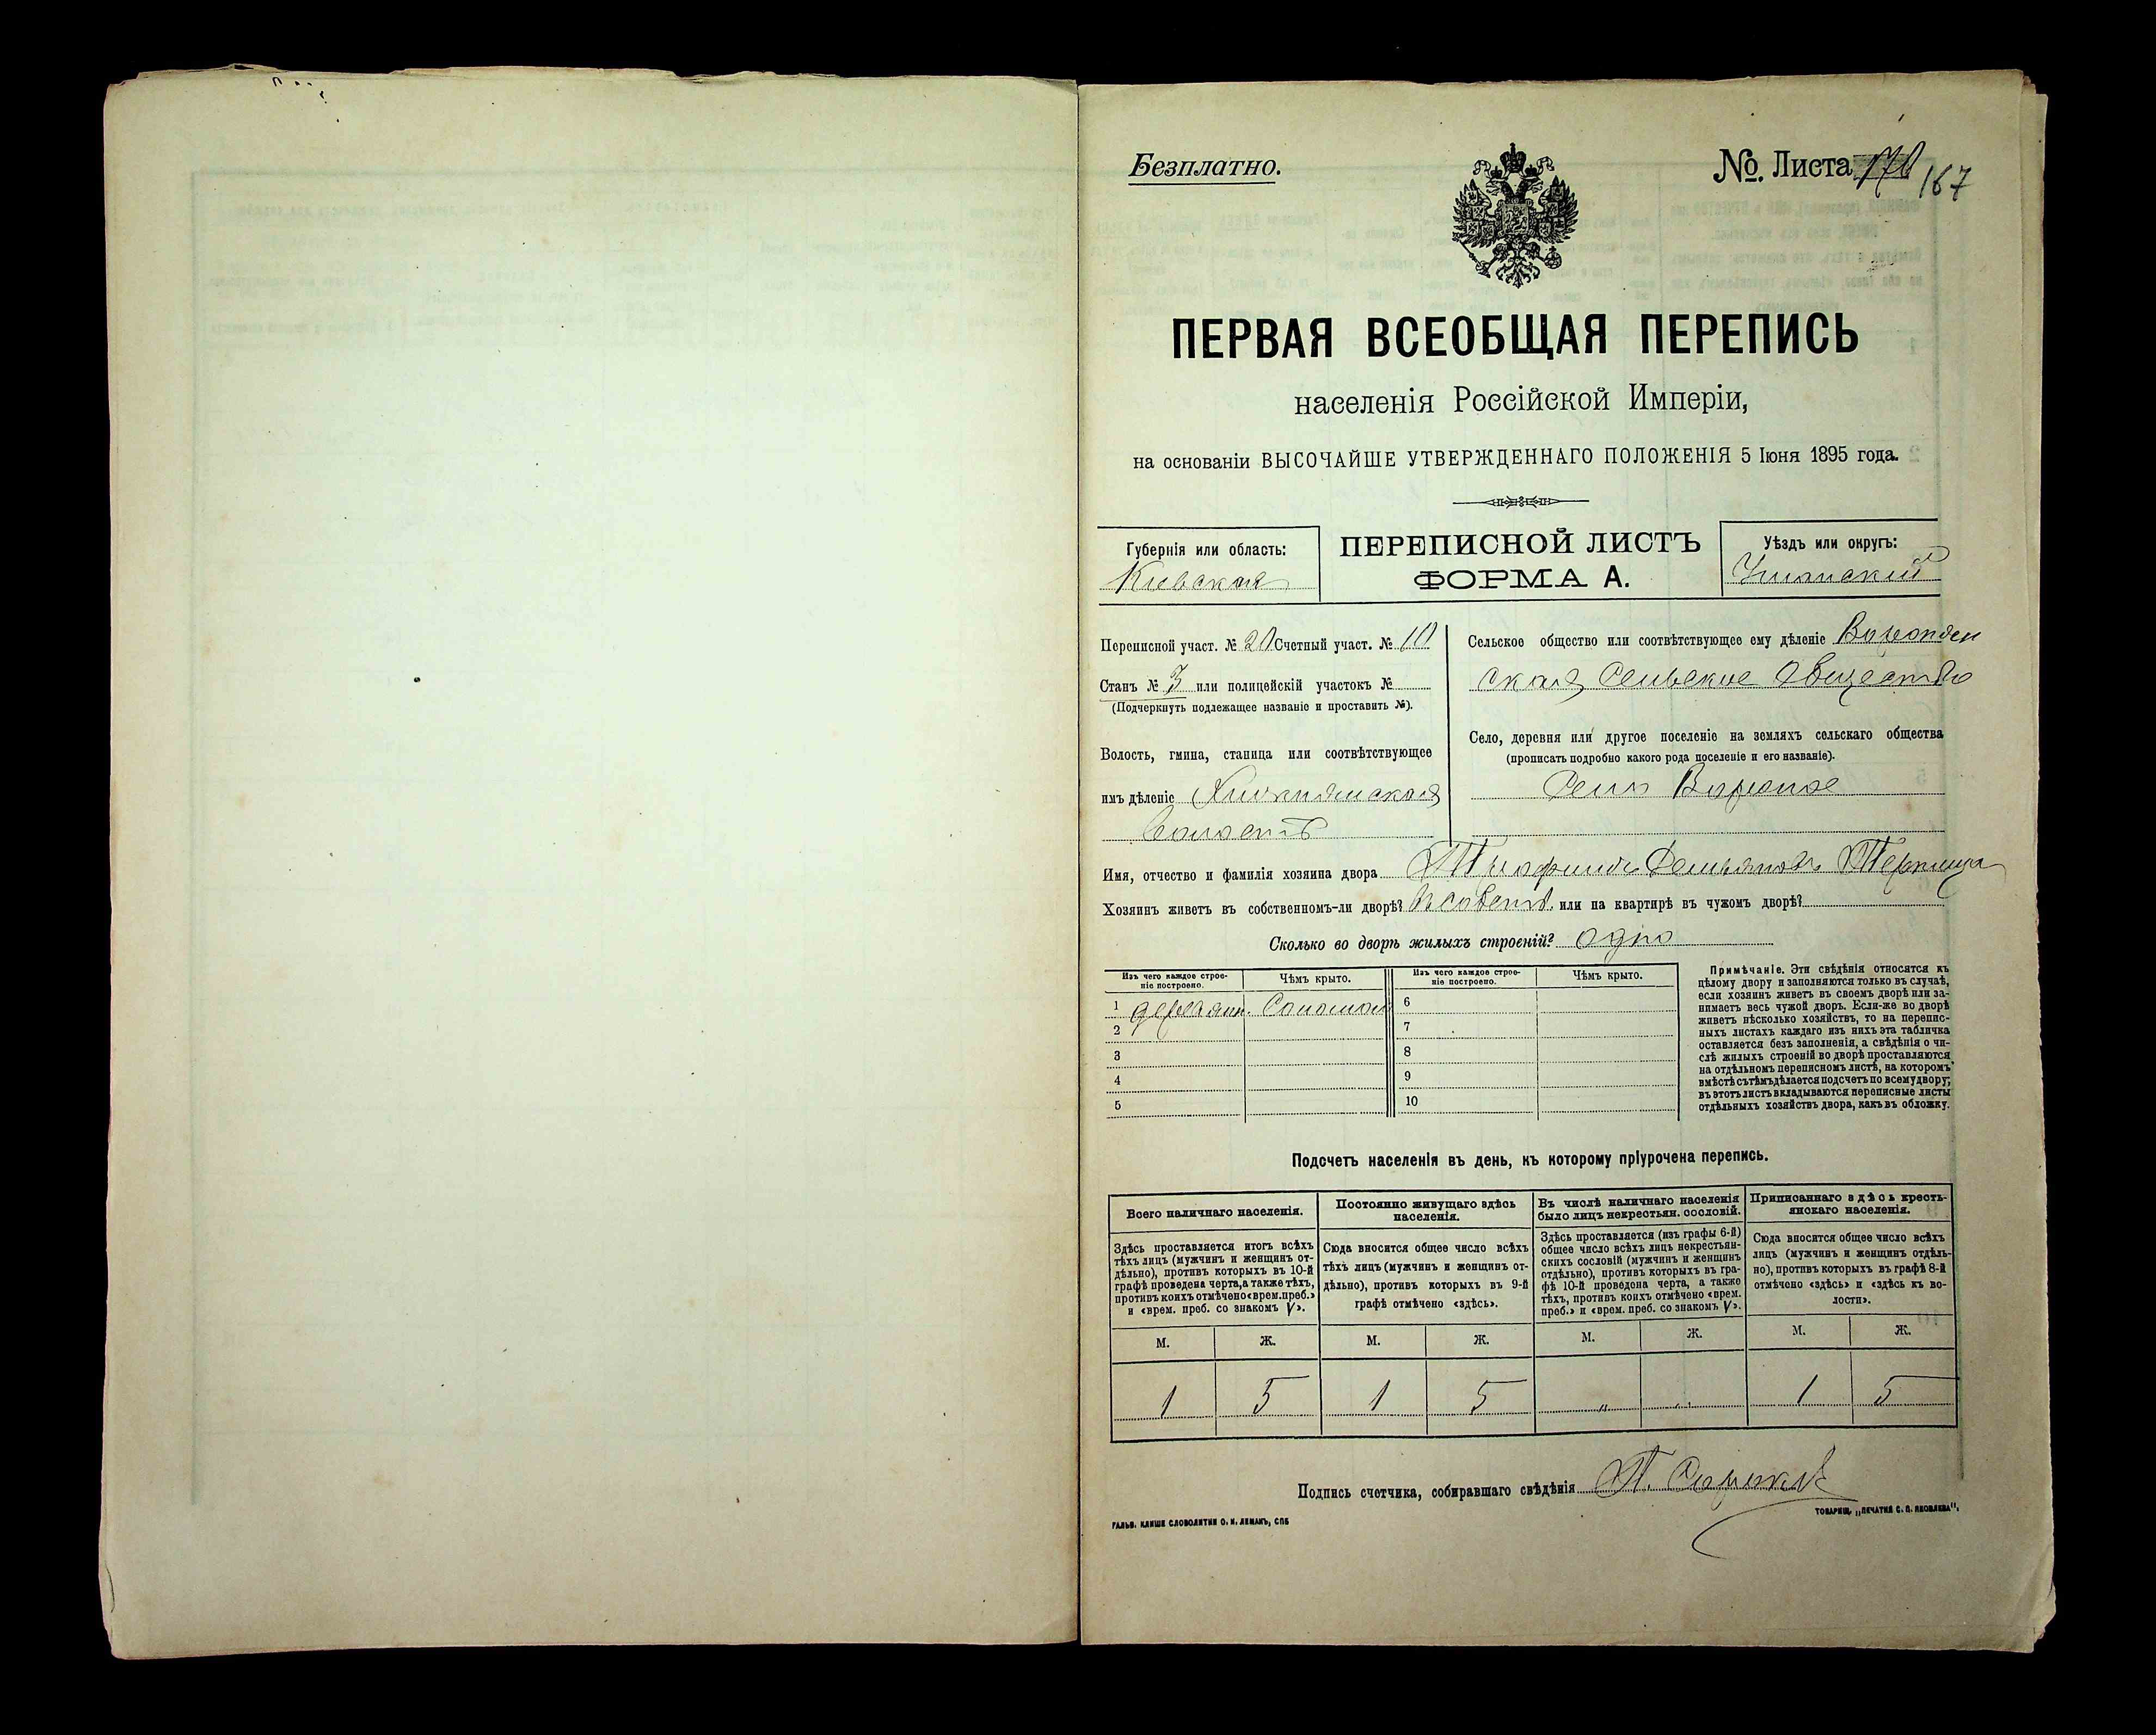 Безплатно.
№. Листа 167
ПЕРВАЯ ВСЕОБЩАЯ ПЕРЕПИСЬ
населенія Россійской Имперіи,
на основаніи ВЫСОЧАЙШЕ УТВЕРЖДЕННАГО ПОЛОЖЕНІЯ 5 Іюня 1895 года.
Губернія или область:
Кіевская
ПЕРЕПИСНОЙ ЛИСТЪ
ФОРМА А.
Уѣздъ или округъ:
Уманский
Переписной участ. № 20 Счетный участ. № 10
Станъ № 3 или полицейскій участокъ №
(Подчеркнуть подлежащее названіе и проставить №).
Волость, гмина, станица или соотвѣтствующее
имъ дѣленіе
Волость
Сельское общество или соотвѣтствующее ему дѣленіе
ская Сельское Общество
Село, деревня или другое поселеніе на земляхъ сельскаго общества
(прописать подробно какого рода поселеніе и его названіе).
Село
Имя, отчество и фамилія хозяина двора
Хозяинъ живетъ въ собственномъ-ли дворѣ? или на квартирѣ въ чужомъ дворѣ?
Сколько во дворѣ жилыхъ строеній? одно
Изъ чего каждое строе-
ніе построено.
Чѣмъ крыто.
Изъ чего каждое строе-
ніе построено.
Чѣмъ крыто.
1 деревян. Соломой 6
2 7
3 8
4 9
5 10
Примѣчаніе. Эти свѣдѣнія относятся къ
цѣлому двору и заполняются только въ случаѣ,
если хозяинъ живетъ въ своемъ дворѣ или за-
нимаетъ весь чужой дворъ. Если-же во дворѣ
живетъ нѣсколько хозяйствъ, то на перепис-
ныхъ листахъ каждаго изъ нихъ эта табличка
оставляется безъ заполненія, а свѣдѣнія о чи-
слѣ жилыхъ строеній во дворѣ проставляются
на отдѣльномъ переписномъ листѣ, на которомъ
вмѣстѣ съ тѣмъ дѣлается подсчетъ по всему двору;
въ этотъ листъ вкладываются переписные листы
отдѣльныхъ хозяйствъ двора, какъ въ обложку.
Подсчетъ населенія въ день, къ которому пріурочена перепись.
Всего наличнаго населенія.
Здѣсь проставляется итогъ всѣхъ
тѣхъ лицъ (мужчинъ и женщинъ от-
дѣльно), противъ которыхъ въ 10-й
графѣ проведена черта, а также тѣхъ,
противъ коихъ отмѣчено «врем. преб.»
и «врем. преб. со знакомъ V».
Постоянно живущаго здѣсь
населенія.
Сюда вносится общее число всѣхъ
тѣхъ лицъ (мужчинъ и женщинъ от-
дѣльно), противъ которыхъ въ 9-й
графѣ отмѣчено «здѣсь».
Въ числѣ наличнаго населенія
было лицъ некрестьян. сословій.
Здѣсь проставляется (изъ графы 6-й)
общее число всѣхъ лицъ некрестьян-
скихъ сословій (мужчинъ и женщинъ
отдѣльно), противъ которыхъ въ гра-
фѣ 10-й проведена черта, а также
тѣхъ, противъ коихъ отмѣчено «врем.
преб.» и «врем. преб. со знакомъ V».
Приписаннаго здѣсь кресть-
янскаго населенія.
Сюда вносится общее число всѣхъ
лицъ (мужчинъ и женщинъ отдѣль-
но), противъ которыхъ въ графѣ 8-й
отмѣчено «здѣсь» и «здѣсь къ во-
лости».
М. Ж. М. Ж. М. Ж. М. Ж.
1 5 1 5 „ „ 1 5
Подпись счетчика, собиравшаго свѣдѣнія
ГАЛЬВ. КЛИШЕ СЛОВОЛИТНИ О. И. ЛЕМАНЪ, СПБ
ТОВАРИЩ. „ПЕЧАТНЯ С. П. ЯКОВЛЕВА".